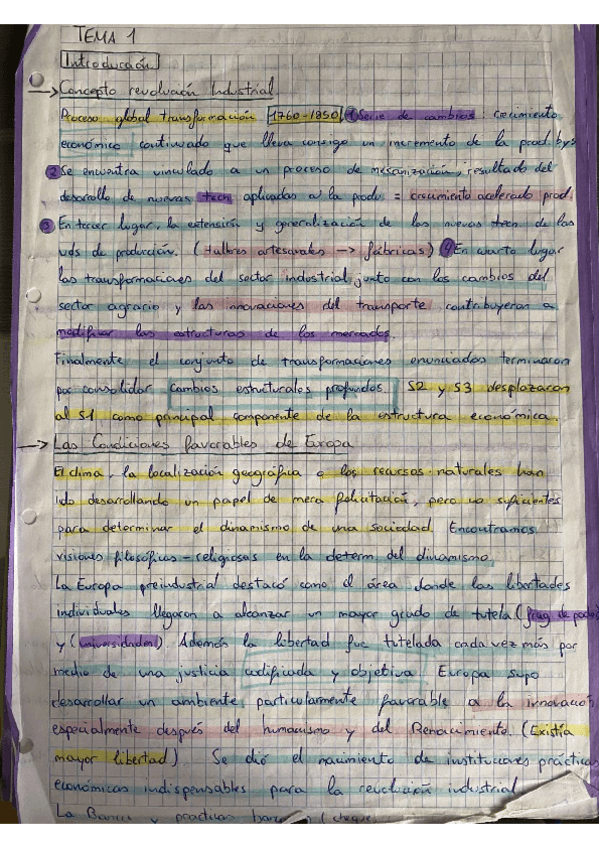 TEMA 1
Introducción
→ Concepto revolución Industrial.
Proceso global transformación 1760-1850 1 Serie de cambios: crecimiento
económico continuado que lleva consigo un incremento de la prod. bys
2 Se encuentra vinculado a un proceso de mecanización, resultado del
desarrollo de nuevas tecn aplicadas a la produ = crecimiento acelerado prod.
3 En tercer lugar, la extensión y generalización de las nuevas tecn de las
uds de producción. (talleres artesanales → fábricas) 4 En cuarto lugar
las transformaciones del sector industrial junto con los cambios del
sector agrario y las innovaciones del transporte contribuyeron a
modificar las estructuras de los mercados.
Finalmente, el conjunto de transformaciones enunciadas terminaron
por consolidar cambios estructurales profundos. S2 y S3 desplazaron
al S1 como principal componente de la estructura económica.
→ Las Condiciones favorables de Europa
El clima, la localización geográfica o los recursos naturales han
ido desarrollando un papel de mera, pero no suficientes
para determinar el dinamismo de una sociedad. Encontramos
visiones filosóficas-religiosas en la determ del dinamismo.
La Europa preindustrial destacó como el área donde las libertades
individuales llegaron a alcanzar un mayor grado de tutela (frag. de
y (universidades). Además la libertad fue tutelada cada vez más por
medio de una justicia codificada y objetiva. Europa supo
desarrollar un ambiente, particularmente favorable a la innovación,
especialmente después del humanismo y del Renacimiento. (Existía
mayor libertad). Se dió el nacimiento de instituciones prácticas
económicas indispensables para la revolución industrial
La y practicas